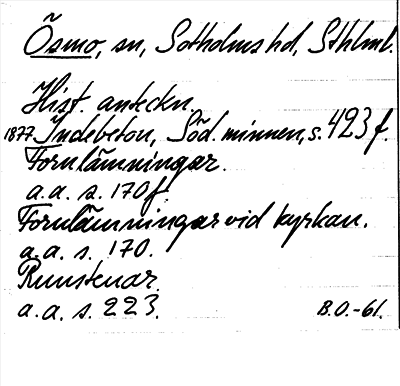 Ösmo, sn, Sotholms hd, Sthlml.
Hist. anteckn.
1877. Indebetou, Söd. minnen, s. 423 f.
Fornlämningar.
a.a. s. 170 f.
Fornlämningar vid kyrkan.
a.a. s. 170.
Runstenar.
a.a. s. 223.
B.O.-61.